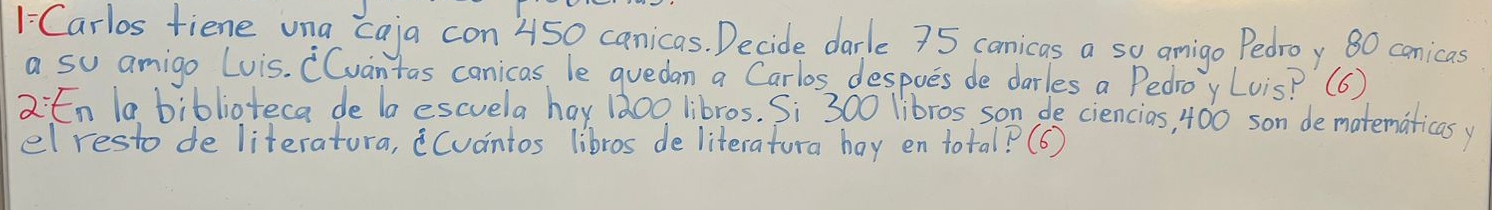 problemas.
1=Carlos tiene una caja con 450 canicas. Decide darle 75 canicas a su amigo Pedro y 80 canicas
a su amigo Luis. ¿Cuántas canicas le quedan a Carlos después de darles a Pedro y Luis? (6)
2=En la biblioteca de la escuela hay 1200 libros. Si 300 libros son de ciencias, 400 son de matemáticas y
el resto de literatura, ¿Cuántos libros de literatura hay en total? (6)